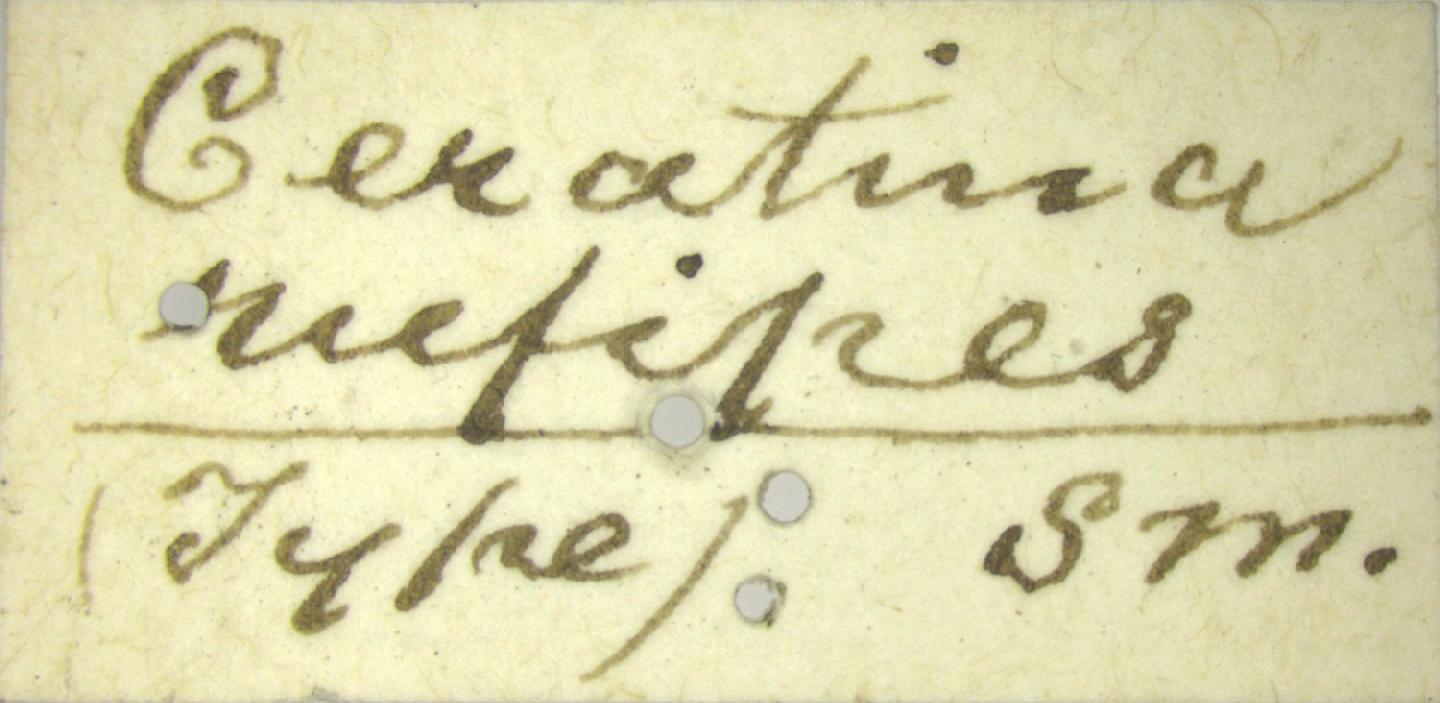 Ceratina
rufipes
(Type) Sm.